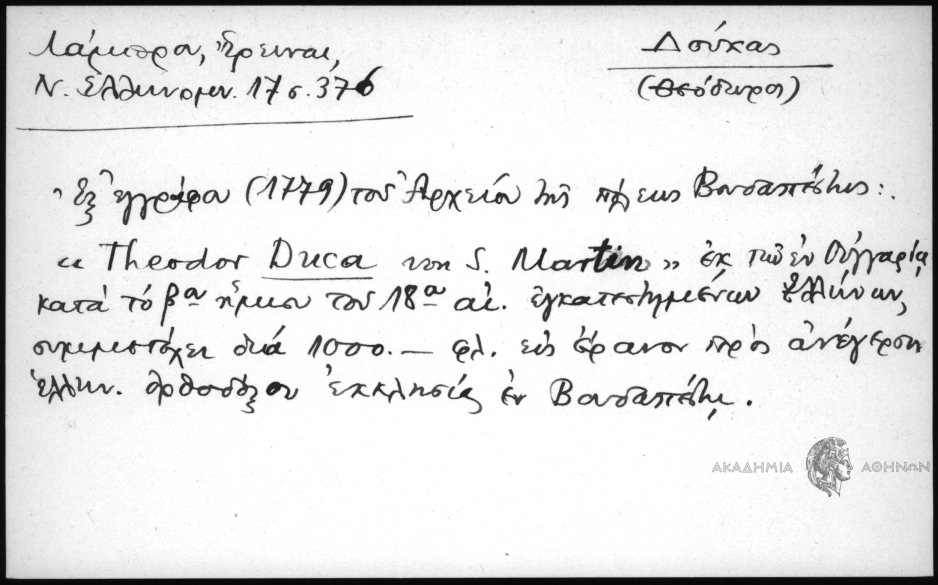 Λάμπρου, Ἔρευναι,
Ν. Ἑλληνομν. 17 σ. 376
Δούκας
(Θεόδωρος)
Ἐξ ἐγγράφου (1779) τοῦ Ἀρχείου τῆς πόλεως Βουδαπέστης:
« Theodor Duca von S. Martin » ἐκ τῶν ἐν Οὑγγαρίᾳ
κατά τό βον ἥμισυ τοῦ 18ου αἰ. ἐγκατεστημένων Ἑλλήνων,
συμμετέχει διά 1000.— φλ. εἰς ἔρανον πρός ἀνέγερσιν
ἑλλην. ὀρθοδόξου ἐκκλησίας ἐν Βουδαπέστῃ.
ΑΚΑΔΗΜΙΑ ΑΘΗΝΩΝ